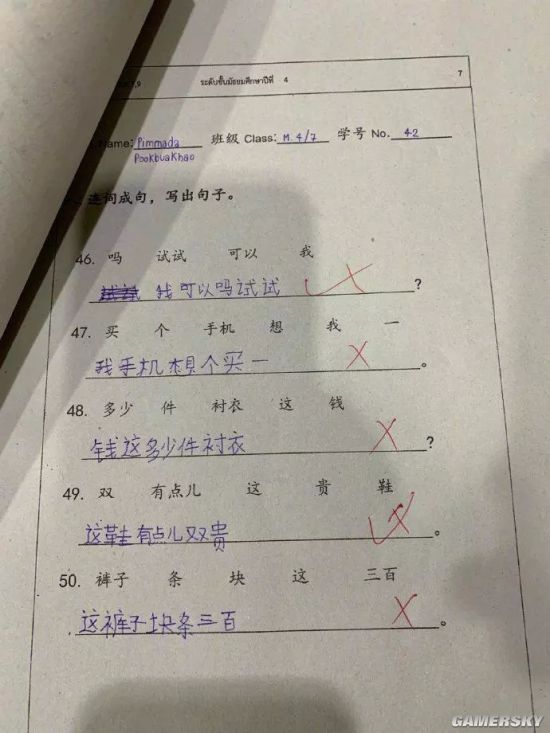 ,9 ระดับชั้นมัธยมศึกษาปีที่ 4 7
Name: Pimmada 班级 Class: M.4/7 学号 No. 42
Pookbuakhao
连词成句，写出句子。
46. 吗 试试 可以 我
我可以吗试试 ?
47. 买 个 手机 想 我 一
我手机想个买一 。
48. 多少 件 衬衣 这 钱
钱这多少件衬衣 ?
49. 双 有点儿 这 贵 鞋
这鞋有点儿双贵 。
50. 裤子 条 块 这 三百
这裤子块条三百 。
GAMERSKY